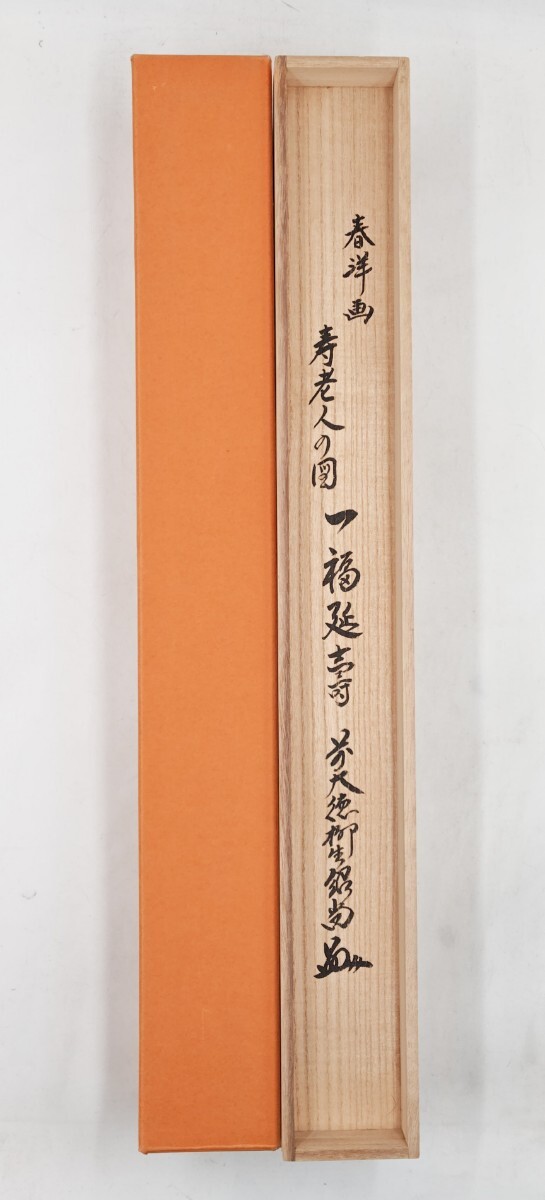 春洋画
寿老人の図
一福延壽 前大徳柳生紹尚